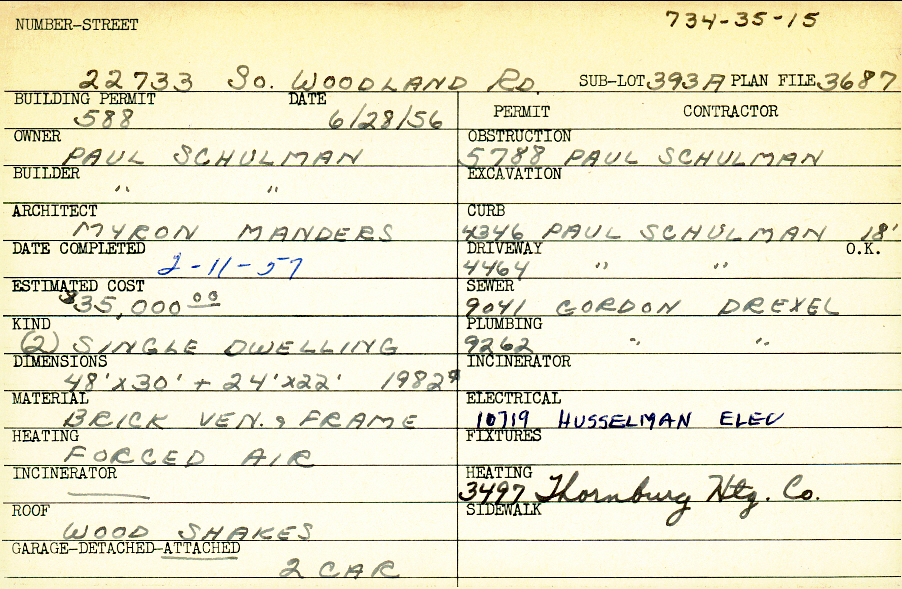 NUMBER-STREET 734-35-15
22733 So. WOODLAND RD. SUB-LOT 393A PLAN FILE 3687
BUILDING PERMIT DATE PERMIT CONTRACTOR
588 6/28/56
OWNER OBSTRUCTION
PAUL SCHULMAN 5788 PAUL SCHULMAN
BUILDER EXCAVATION
" "
ARCHITECT CURB
MYRON MANDERS 4346 PAUL SCHULMAN 18'
DATE COMPLETED DRIVEWAY O.K.
2-11-57 4464 " "
ESTIMATED COST SEWER
$35,000.00 9041 GORDON DREXEL
KIND PLUMBING
(2) SINGLE DWELLING 9262 " "
DIMENSIONS INCINERATOR
48'X30' + 24'X22' 1982
MATERIAL ELECTRICAL
BRICK VEN. & FRAME 10719 HUSSELMAN ELEC
HEATING FIXTURES
FORCED AIR
INCINERATOR HEATING
3497 Thornburg Htg. Co.
ROOF SIDEWALK
WOOD SHAKES
GARAGE-DETACHED-ATTACHED
2 CAR